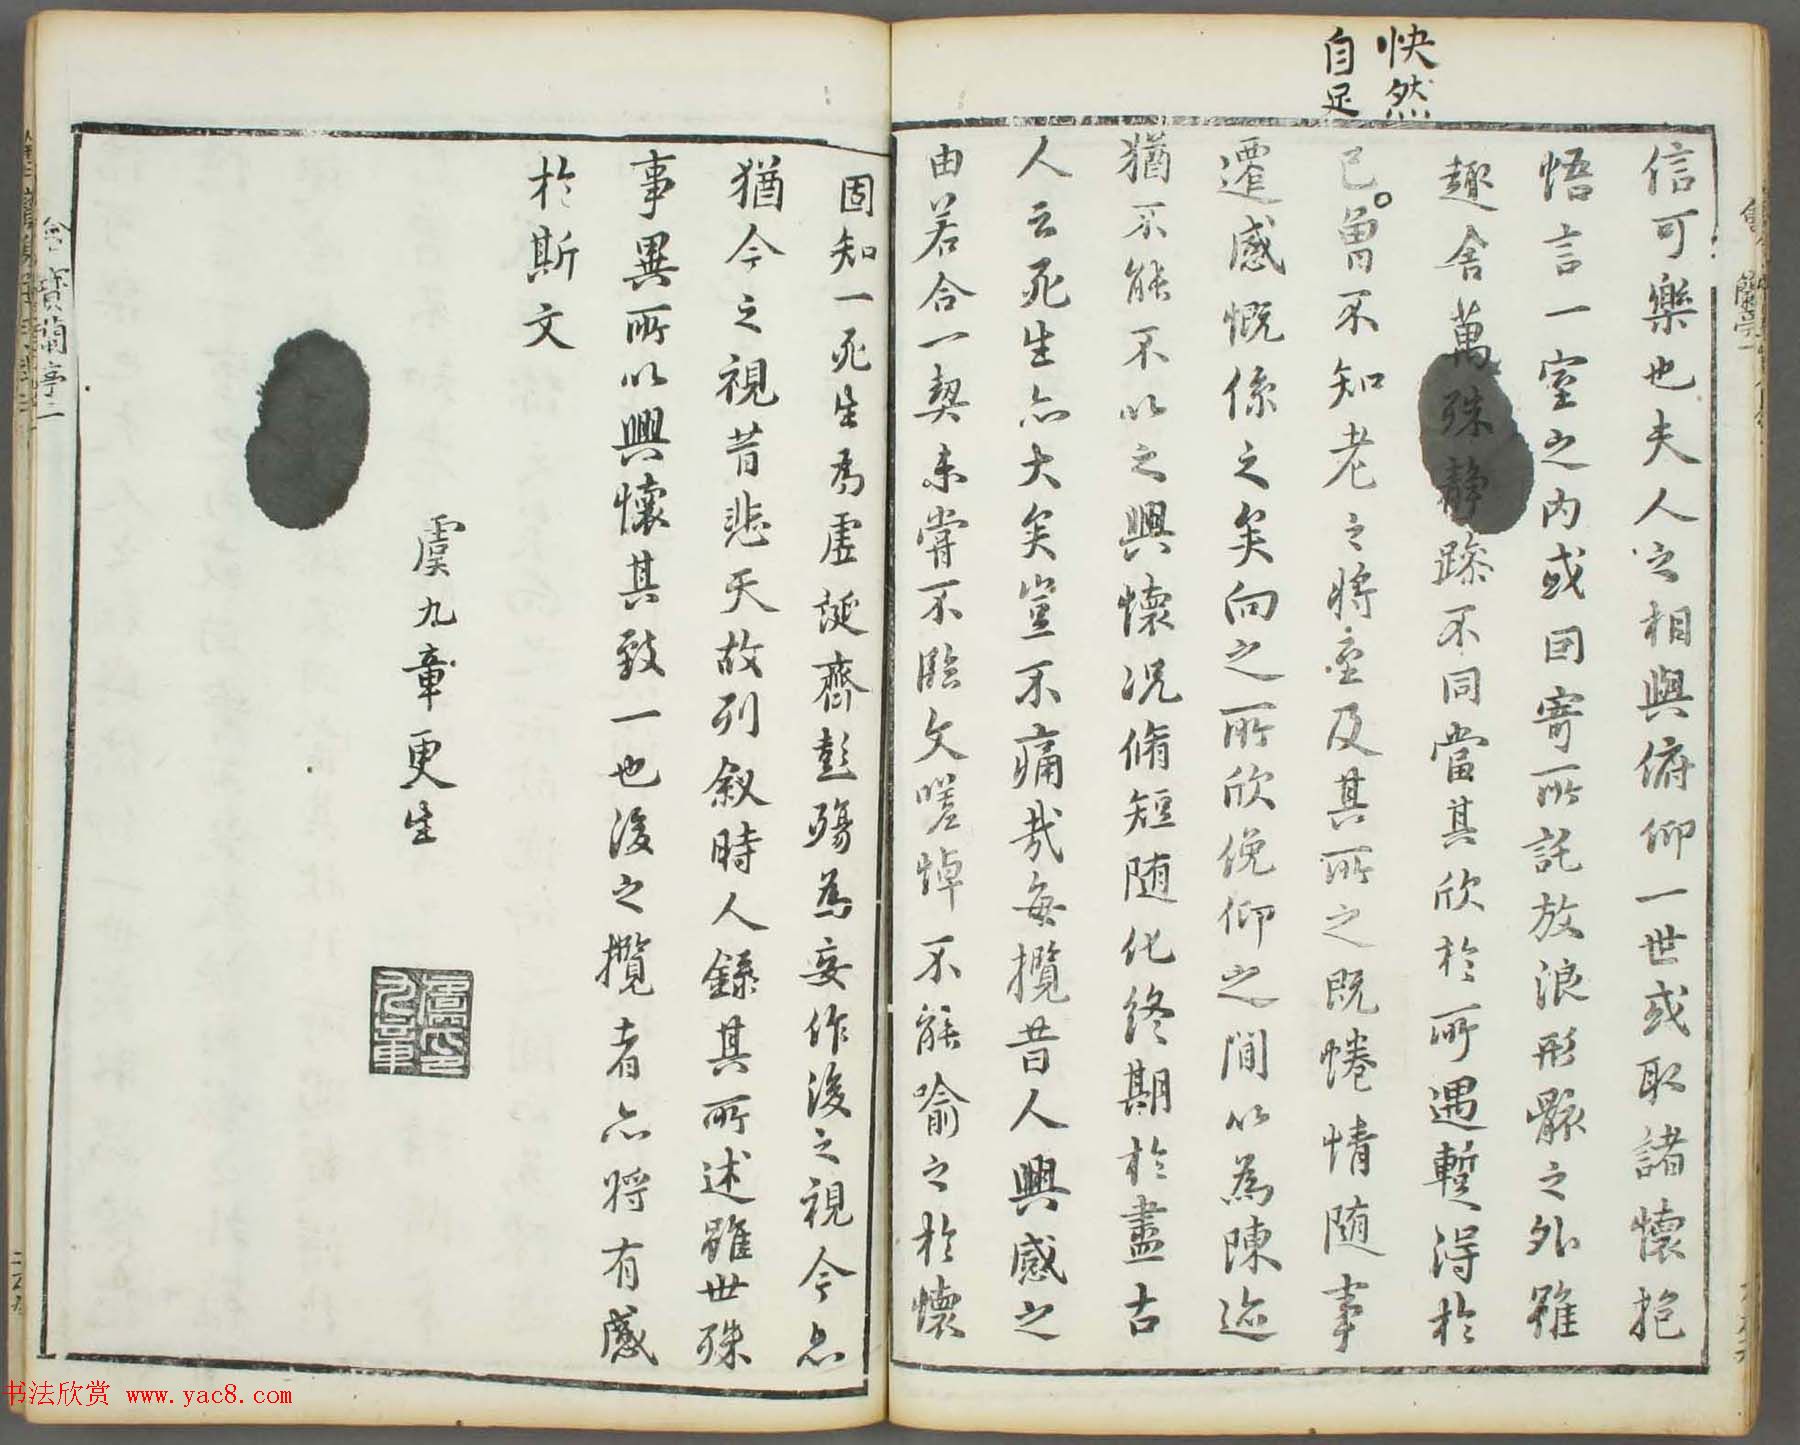 快然
自足
信可樂也夫人之相與俯仰一世或取諸懷抱
悟言一室之內或因寄所託放浪形骸之外雖
趣舍萬殊静躁不同當其欣於所遇蹔得於
已曽不知老之將至及其所之既惓情随事
遷感慨係之矣向之所欣俛仰之間以為陳迹
猶不能不以之興懷況脩短随化終期於盡古
人云死生亦大矣豈不痛哉每攬昔人興感之
由若合一契未嘗不臨文嗟悼不能喻之於懷
固知一死生為虛誕齊彭殤為妄作後之視今亦
猶今之視昔悲夫故列叙時人錄其所述雖世殊
事異所以興懷其致一也後之攬者亦將有感
於斯文
虞九章更生
虞氏九章
寶蘭亭二
书法欣赏 www.yac8.com